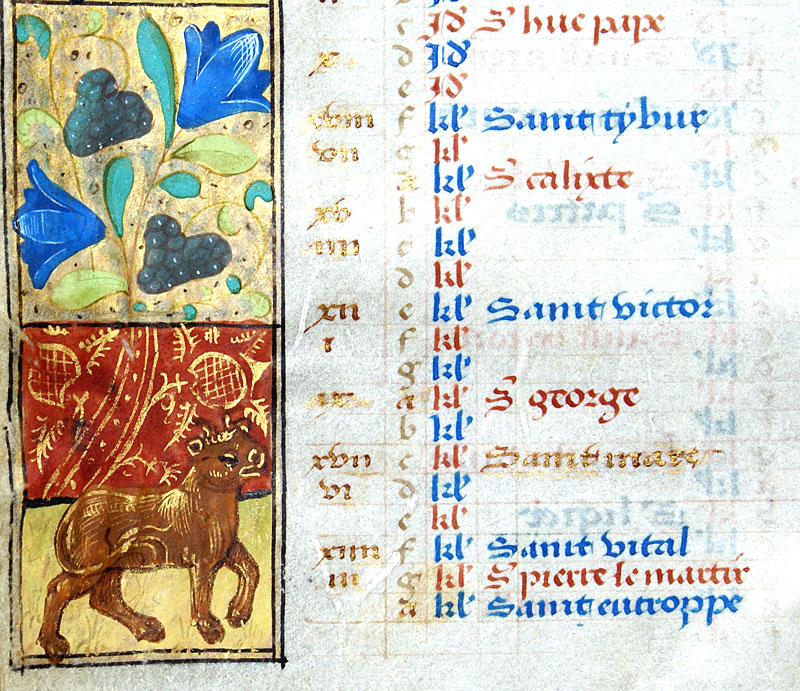 c Id S hue pape
x d Id
e Id
xviii f kl Saint tybur
vii g kl
a kl S calixte
xv b kl
iiii c kl
d kl
xii e kl Saint victor
i f kl
g kl
ix a kl S george
b kl
xvii c kl Saint marc
vi d kl
e kl
xiiii f kl Saint vital
iii g kl S pierre le martir
a kl Saint eutroppe